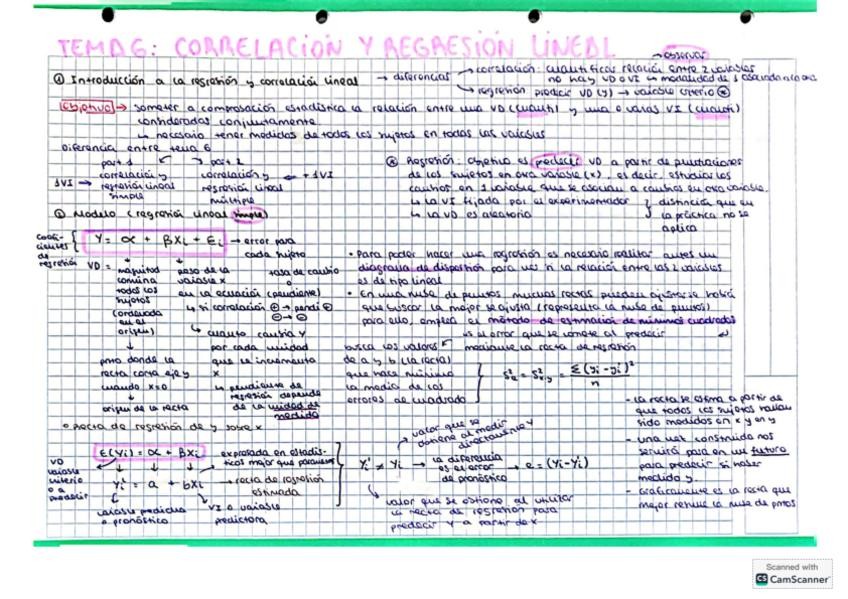 TEMA 6: CORRELACIÓN Y REGRESIÓN LINEAL
→ observar
① Introducción a la regresión y correlación lineal → diferencias
→ correlación: cuantificar relación entre 2 variables
no hay VD o VI → modalidad de 1 asociada a la otra
→ regresión predecir VD (y) → variable criterio ⊛
Objetivo → someter a comprobación estadística la relación entre una VD (cuanti) y una o varias VI (cuanti)
consideradas conjuntamente.
↳ necesario tener medidas de todos los sujetos en todas las variables
Diferencia entre tema 6
parte 1
parte 2
1 VI → correlación y
regresión lineal
simple
correlación y ← + 1 VI
regresión lineal
múltiple
⊛ Regresión: objetivo es predecir VD a partir de puntuaciones
de los sujetos en otra variable (x), es decir, estudiar los
cambios en 1 variable que se asocian a cambios en otra variable.
↳ la VI fijada por el experimentador
↳ la VD es aleatoria
distinción que en
la práctica no se
aplica
① Modelo (regresión lineal simple)
coefi-
cientes
de
regresión
Y = α + βXi + Ei → error para
cada sujeto
VD = magnitud
común a
todos los
sujetos
(ordenada
en el
origen)
↓
pto donde la
recta corta eje y
cuando x=0
↓
origen de la recta
peso de la
variable x
en la ecuación (pendiente)
tasa de cambio
o
↳ si correlación ⊕ → pendi ⊕
⊖ → ⊖
↳ cuanto cambia Y
por cada unidad
que se incrementa
x
↳ pendiente de
regresión depende
de la unidad de
medida
• Para poder hacer una regresión es necesario realizar antes un
diagrama de dispersión para ver si la relación entre las 2 variables
es de tipo lineal
• En una nube de puntos, muchas rectas pueden ajustarse habrá
que buscar la mejor se ajusta (representa la nube de puntos)
para ello, emplea el método de estimación de mínimos cuadrados
↳ es el error que se comete al predecir
mediante la recta de regresión
busca los valores
de a y b (la recta)
que hace mínimo
la media de los
errores al cuadrado
S²e = S²x·y = Σ(yi - yi')² / n
o Recta de regresión de y sobre x
E(Yi) = α + βXi
expresada en estadís-
ticos mejor que parámetros
VD
variable
criterio
o a
predecir
Yi' = a + bXi → recta de regresión
estimada
variable predicha
o pronóstico
VI o variable
predictora
→ valor que se
obtiene al medir
directamente Y
Yi' ≠ Yi → la diferencia
es el error
de pronóstico
→ e = (Yi - Yi')
valor que se obtiene al utilizar
la recta de regresión para
predecir Y a partir de x
- la recta se estima a partir de
que todos los sujetos hayan
sido medidos en x y en y
- una vez construida nos
servirá para en un futuro
para predecir sin haber
medido y.
- Gráficamente es la recta que
mejor resume la nube de ptos
Scanned with
CS CamScanner